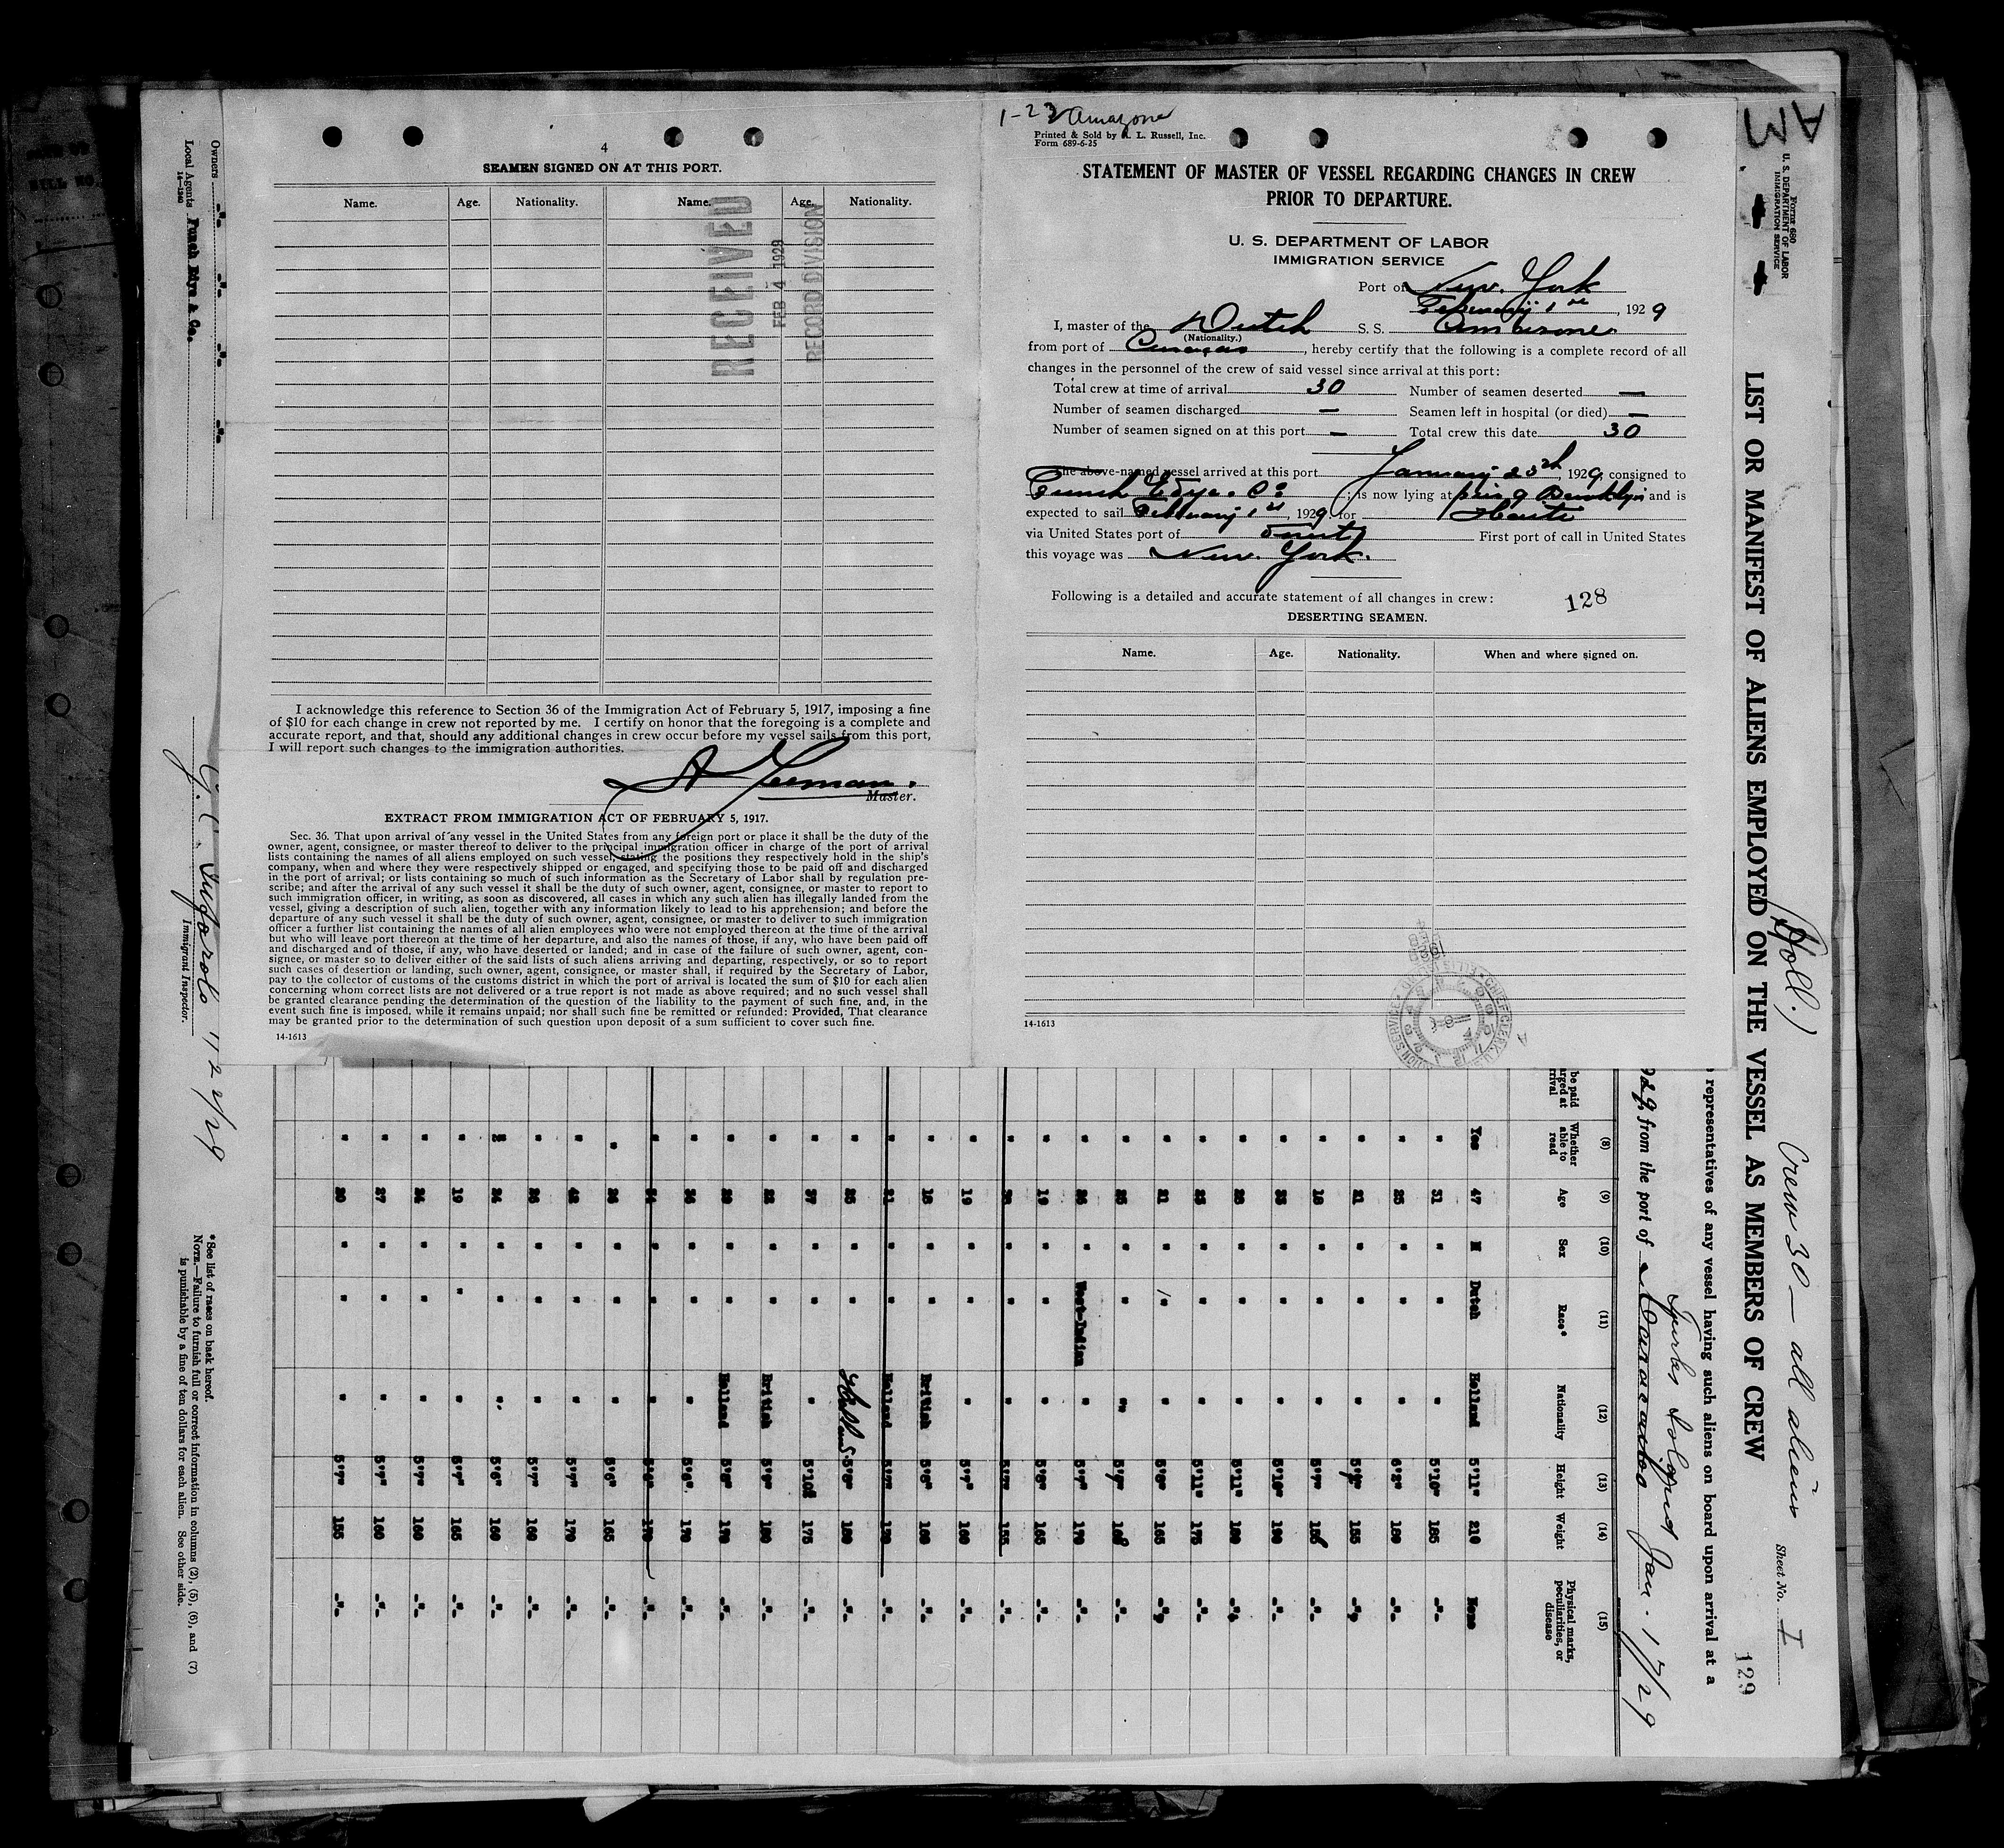 4
SEAMEN SIGNED ON AT THIS PORT.
Name. Age. Nationality. Name. Age. Nationality.
RECEIVED
FEB 4 1929
RECORD DIVISION
I acknowledge this reference to Section 36 of the Immigration Act of February 5, 1917, imposing a fine
of $10 for each change in crew not reported by me. I certify on honor that the foregoing is a complete and
accurate report, and that, should any additional changes in crew occur before my vessel sails from this port,
I will report such changes to the immigration authorities.
Master.
EXTRACT FROM IMMIGRATION ACT OF FEBRUARY 5, 1917.
Sec. 36. That upon arrival of any vessel in the United States from any foreign port or place it shall be the duty of the
owner, agent, consignee, or master thereof to deliver to the principal immigration officer in charge of the port of arrival
lists containing the names of all aliens employed on such vessel, stating the positions they respectively hold in the ship's
company, when and where they were respectively shipped or engaged, and specifying those to be paid off and discharged
in the port of arrival; or lists containing so much of such information as the Secretary of Labor shall by regulation pre-
scribe; and after the arrival of any such vessel it shall be the duty of such owner, agent, consignee, or master to report to
such immigration officer, in writing, as soon as discovered, all cases in which any such alien has illegally landed from the
vessel, giving a description of such alien, together with any information likely to lead to his apprehension; and before the
departure of any such vessel it shall be the duty of such owner, agent, consignee, or master to deliver to such immigration
officer a further list containing the names of all alien employees who were not employed thereon at the time of the arrival
but who will leave port thereon at the time of her departure, and also the names of those, if any, who have been paid off
and discharged and of those, if any, who have deserted or landed; and in case of the failure of such owner, agent, con-
signee, or master so to deliver either of the said lists of such aliens arriving and departing, respectively, or so to report
such cases of desertion or landing, such owner, agent, consignee, or master shall, if required by the Secretary of Labor,
pay to the collector of customs of the customs district in which the port of arrival is located the sum of $10 for each alien
concerning whom correct lists are not delivered or a true report is not made as above required; and no such vessel shall
be granted clearance pending the determination of the question of the liability to the payment of such fine, and, in the
event such fine is imposed, while it remains unpaid; nor shall such fine be remitted or refunded: Provided, That clearance
may be granted prior to the determination of such question upon deposit of a sum sufficient to cover such fine.
14-1613
1-23 Amazone
Printed & Sold by L. Russell, Inc.
Form 689-6-25
STATEMENT OF MASTER OF VESSEL REGARDING CHANGES IN CREW
PRIOR TO DEPARTURE.
U. S. DEPARTMENT OF LABOR
IMMIGRATION SERVICE
Port of New York
February 1st, 1929
I, master of the Dutch S. S. Amazone
(Nationality.)
from port of Curaçao, hereby certify that the following is a complete record of all
changes in the personnel of the crew of said vessel since arrival at this port:
Total crew at time of arrival 30 Number of seamen deserted —
Number of seamen discharged — Seamen left in hospital (or died) —
Number of seamen signed on at this port — Total crew this date 30
The above-named vessel arrived at this port January 23th, 1929, consigned to
Funch Edye & Co; is now lying at pier 9 Brooklyn and is
expected to sail February 1st, 1929, for Haiti
via United States port of First port of call in United States
this voyage was New York.
Following is a detailed and accurate statement of all changes in crew:
128
DESERTING SEAMEN.
Name. Age. Nationality. When and where signed on.
14-1613
AM
Form 680
U. S. DEPARTMENT OF LABOR
IMMIGRATION SERVICE
LIST OR MANIFEST OF ALIENS EMPLOYED ON THE VESSEL AS MEMBERS OF CREW
(Holl.) Crew 30 — all aliens
Sheet No. I
129
representatives of any vessel having such aliens on board upon arrival at a
Turks Island
929, from the port of Jan. 17/29
be paid
arged at
rrival
(8) Whether able to read
(9) Age
(10) Sex
(11) Race*
(12) Nationality
(13) Height
(14) Weight
(15) Physical marks, peculiarities, or disease
Yes 47 M Dutch Holland 5'11" 210 None
" 31 " " " 5'10" 185 -"-
" 25 " " " 6'2" 180 -"-
" 21 " " " 155 -"-
" 18 " " " 5'7" -"-
" 23 " " " 5'10" 190 -"-
" 28 " " " 5'11" 180 -"-
" 23 " " " 5'11" 175 -"-
" 21 " " " 165 -"-
" 25 " " " 5'7" -"-
" 26 " West-Indian " 5'7" 170 -"-
" 19 " " " 5'8" 165 -"-
" " " " 5'7" 155 -"-
" 19 " " " 5'7" 160 -"-
" 18 " " British 5'8" 168 -"-
" 21 " " Holland 5'7" 170 -"-
" 25 " " Holland 180 -"-
" 27 " " " 5'10" 175 -"-
" 22 " " British 180 -"-
" " " Holland 170 -"-
" 26 " " " 5'6" 170 -"-
" 34 " " " 170 -"-
" 26 " " " 5'6" 165 -"-
" 42 " " " 5'7" 170 -"-
" " " " 5'7" 160 -"-
" 24 " " " 5'6" 160 -"-
" 19 " " " 5'7" 165 -"-
" 24 " " " 5'7" 160 -"-
" 27 " " " 5'7" 160 -"-
" 20 " " " 5'7" 155 -"-
Owners -"- -"- -"- -"-
Local Agents Funch Edye & Co.
14-1240
1/22/29
Immigrant Inspector.
* See list of races on back hereof.
NOTE.—Failure to furnish full or correct information in columns (2), (5), (6), and (7)
is punishable by a fine of ten dollars for each alien. See other side.